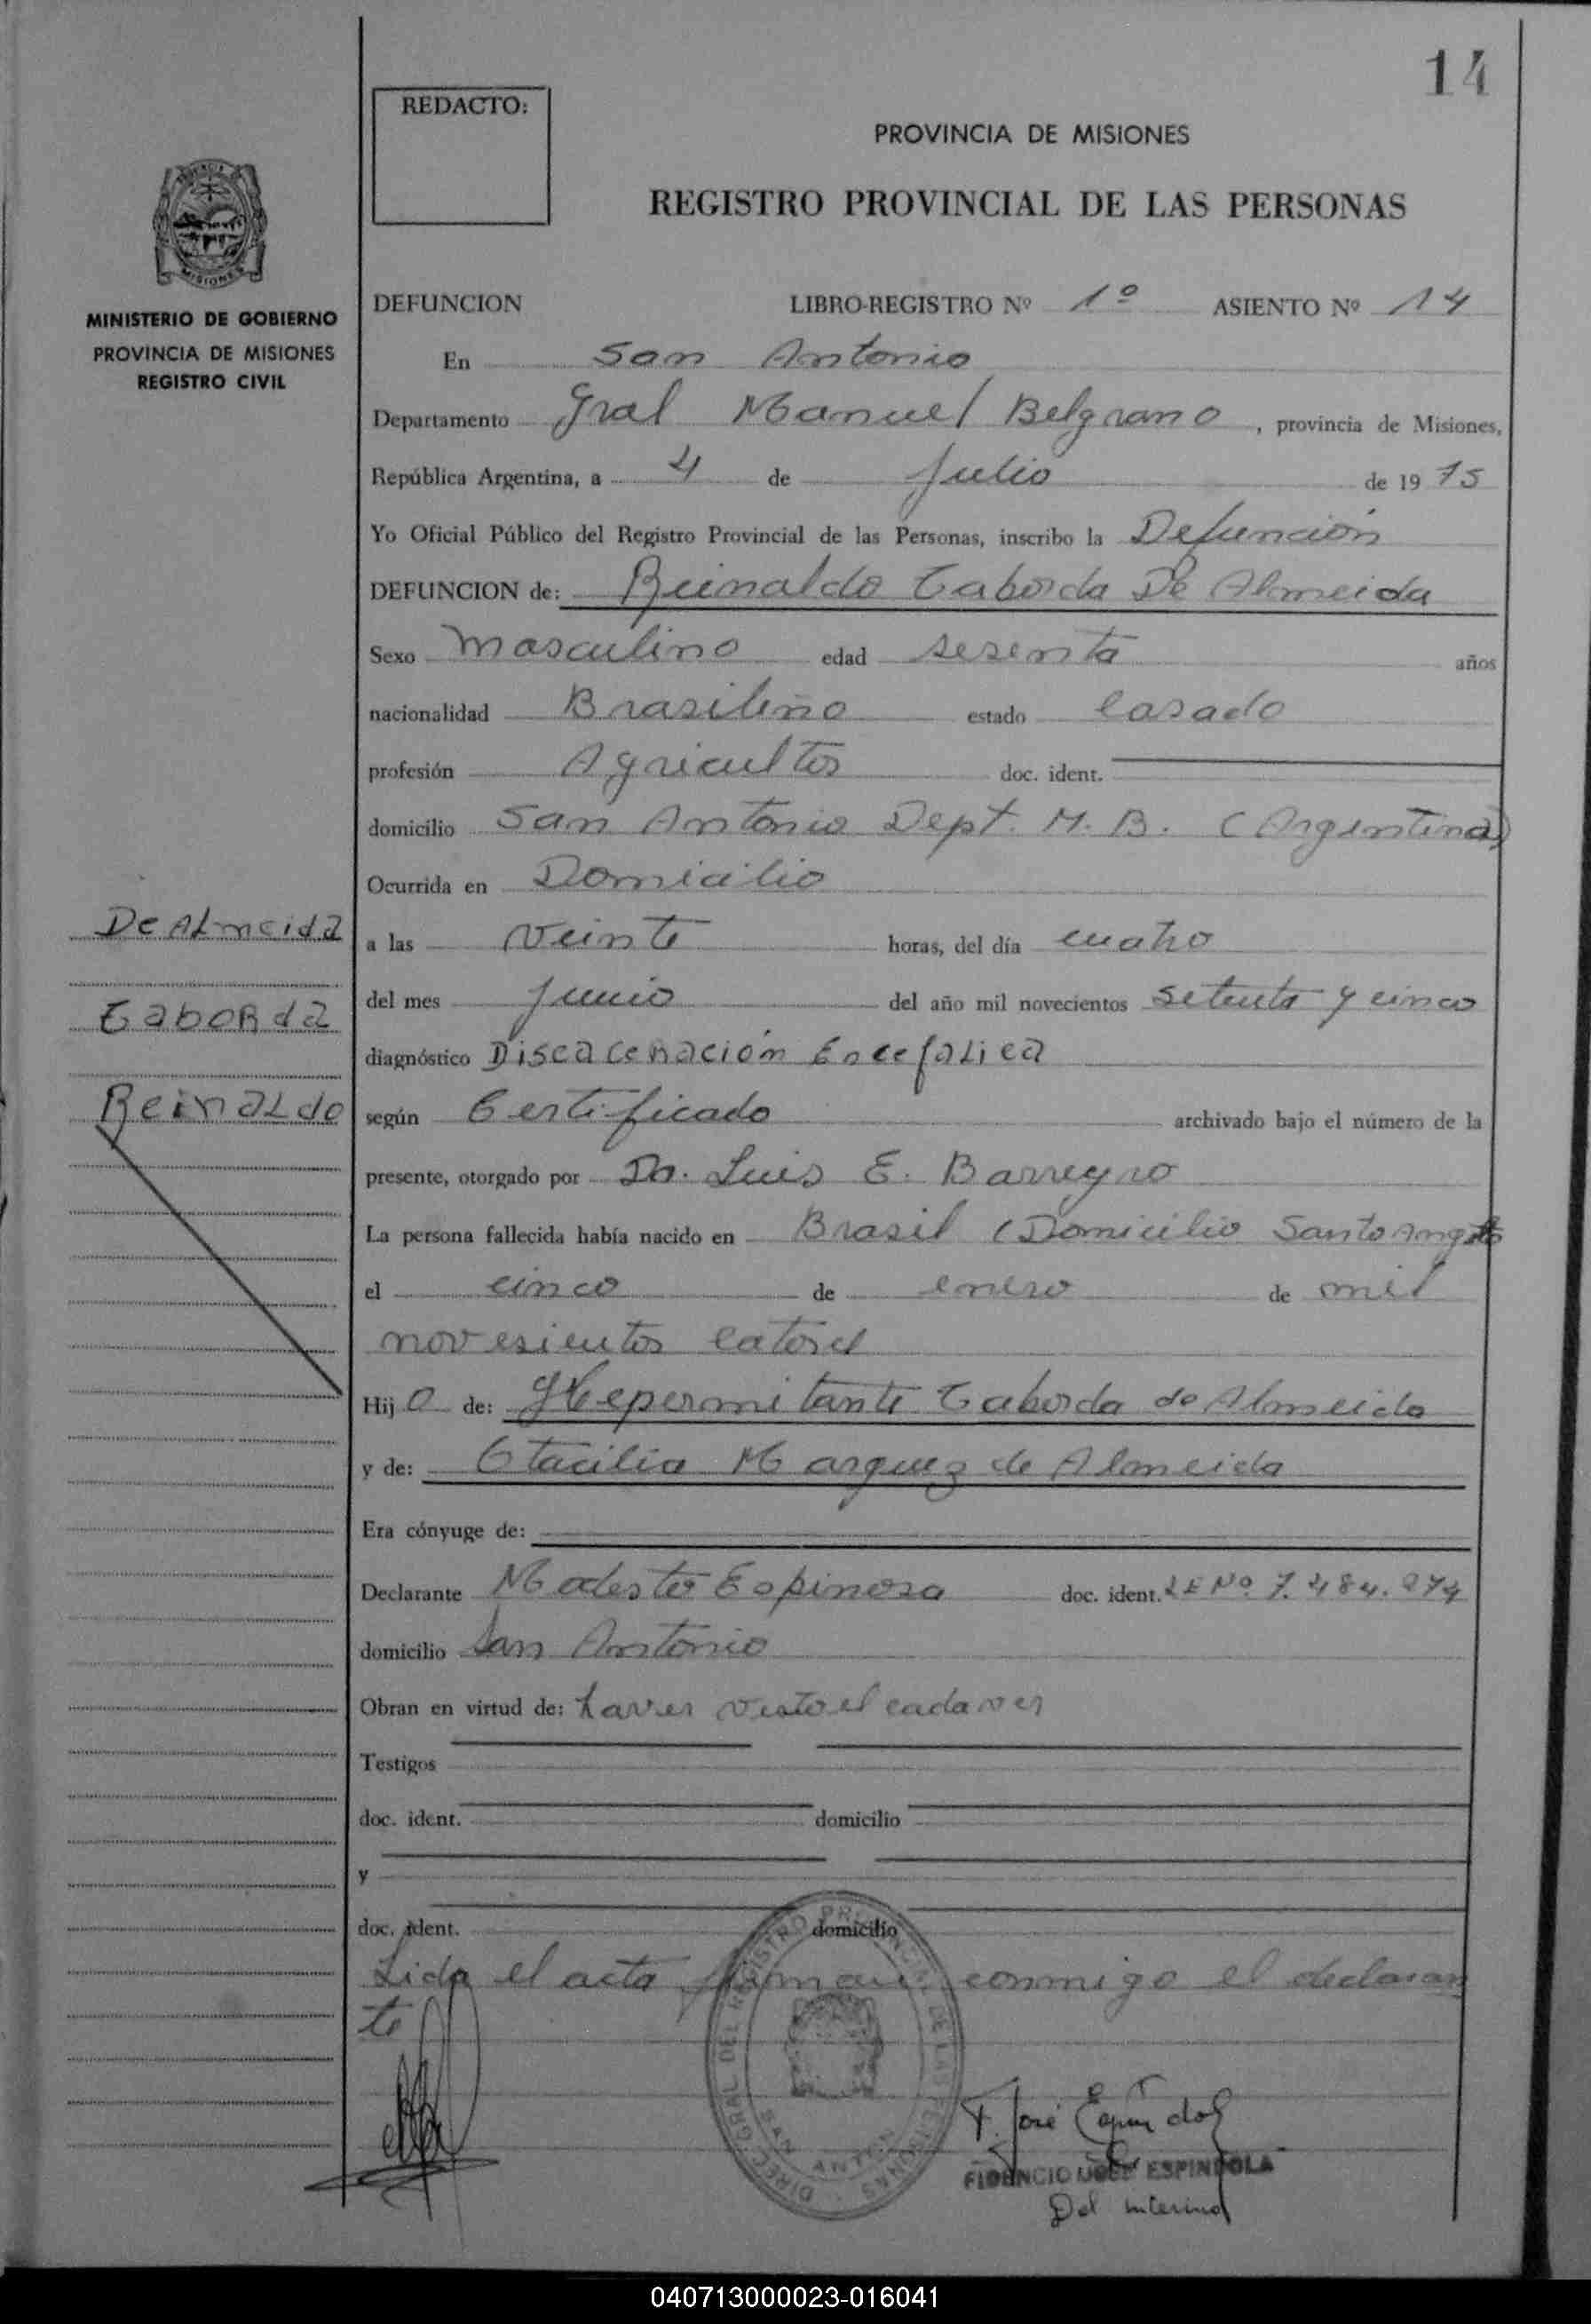 14
REDACTO:
PROVINCIA DE MISIONES
REGISTRO PROVINCIAL DE LAS PERSONAS
MISIONES
MINISTERIO DE GOBIERNO
PROVINCIA DE MISIONES
REGISTRO CIVIL
DEFUNCION LIBRO-REGISTRO Nº 1º ASIENTO Nº 14
En San Antonio
Departamento Gral Manuel Belgrano, provincia de Misiones,
República Argentina, a 4 de Julio de 1975
Yo Oficial Público del Registro Provincial de las Personas, inscribo la Defunción
DEFUNCION de: Reinaldo Taborda De Almeida
Sexo Masculino edad sesenta años
nacionalidad Brasileño estado Casado
profesión Agricultor doc. ident.
domicilio San Antonio Dept. M. B. (Argentina)
Ocurrida en Domicilio
a las veinte horas, del día cuatro
del mes Junio del año mil novecientos setenta y cinco
diagnóstico Discacenación Encefalica
según Certificado archivado bajo el número de la
presente, otorgado por Dr. Luis E. Barreyro
La persona fallecida había nacido en Brasil (Domicilio Santo
el cinco de enero de mil
novesientos catorce
Hijo de: Hepermitante Taborda de Almeida
y de: Otacilia Marquez de Almeida
Era cónyuge de:
Declarante Modesto Espinosa doc. ident. LE Nº 7.484.274
domicilio San Antonio
Obran en virtud de: haver visto el cadaver
Testigos
doc. ident. domicilio
y
doc. ident. domicilio
Lida el acta firman conmigo el declaran
te
De Almeida
Taborda
Reinaldo
DIREC. GRAL DEL REGISTRO PROVINCIAL DE LAS PERSONAS
SAN ANTONIO
F. José Espindola
FIDENCIO JOSE ESPINDOLA
Del interino
040713000023-016041